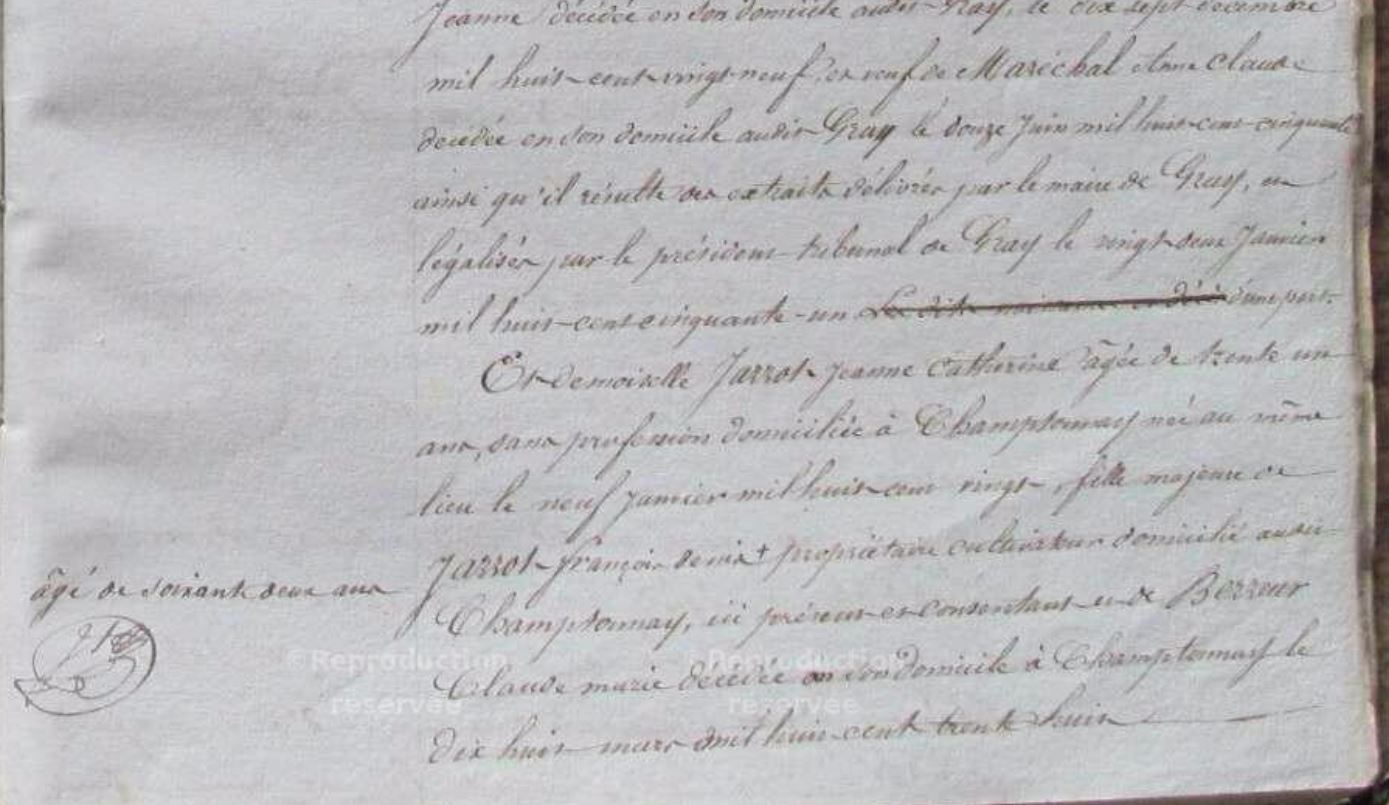 Jeanne décédée en son domicile audit Gray, le dix sept décembre
mil huit cent vingt neuf, et veuf de Maréchal Anne Claude
décédée en son domicile audit Gray le douze Juin mil huit cent cinquante
ainsi qu'il résulte des extraits délivrés par le maire de Gray, et
légalisés par le président tribunal de Gray le vingt deux Janvier
mil huit cent cinquante-un d'une part.
Et demoiselle Jarrot Jeanne Catherine âgée de trente un
ans, sans profession domiciliée à Champtonnay née au même
lieu le neuf Janvier mil huit cent vingt, fille majeure de
Jarrot françois denis + propriétaire cultivateur domicilié audit
âgé de soixante deux ans
Champtonnay, ici présent et consentant et de Berreur
Claude marie décédée en son domicile à Champtonnay le
dix huit mars mil huit cent trente huit
© Reproduction réservée
© Reproduction réservée